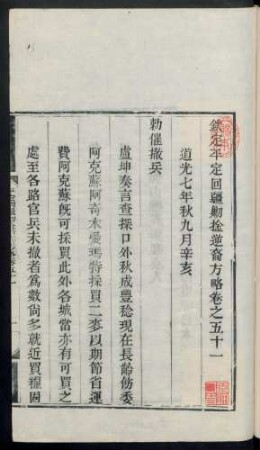 欽定平定回疆剿捦逆裔方略卷之五十一
道光七年秋九月辛亥
勅催撤兵
盧坤奏言查探口外秋成豐稔現在長齡飭委
阿克蘇阿奇木愛瑪特採買二麥以期節省運
費阿克蘇旣可採買此外各城當亦有可買之
處至各路官兵未撤者爲數尙多就近買糧固